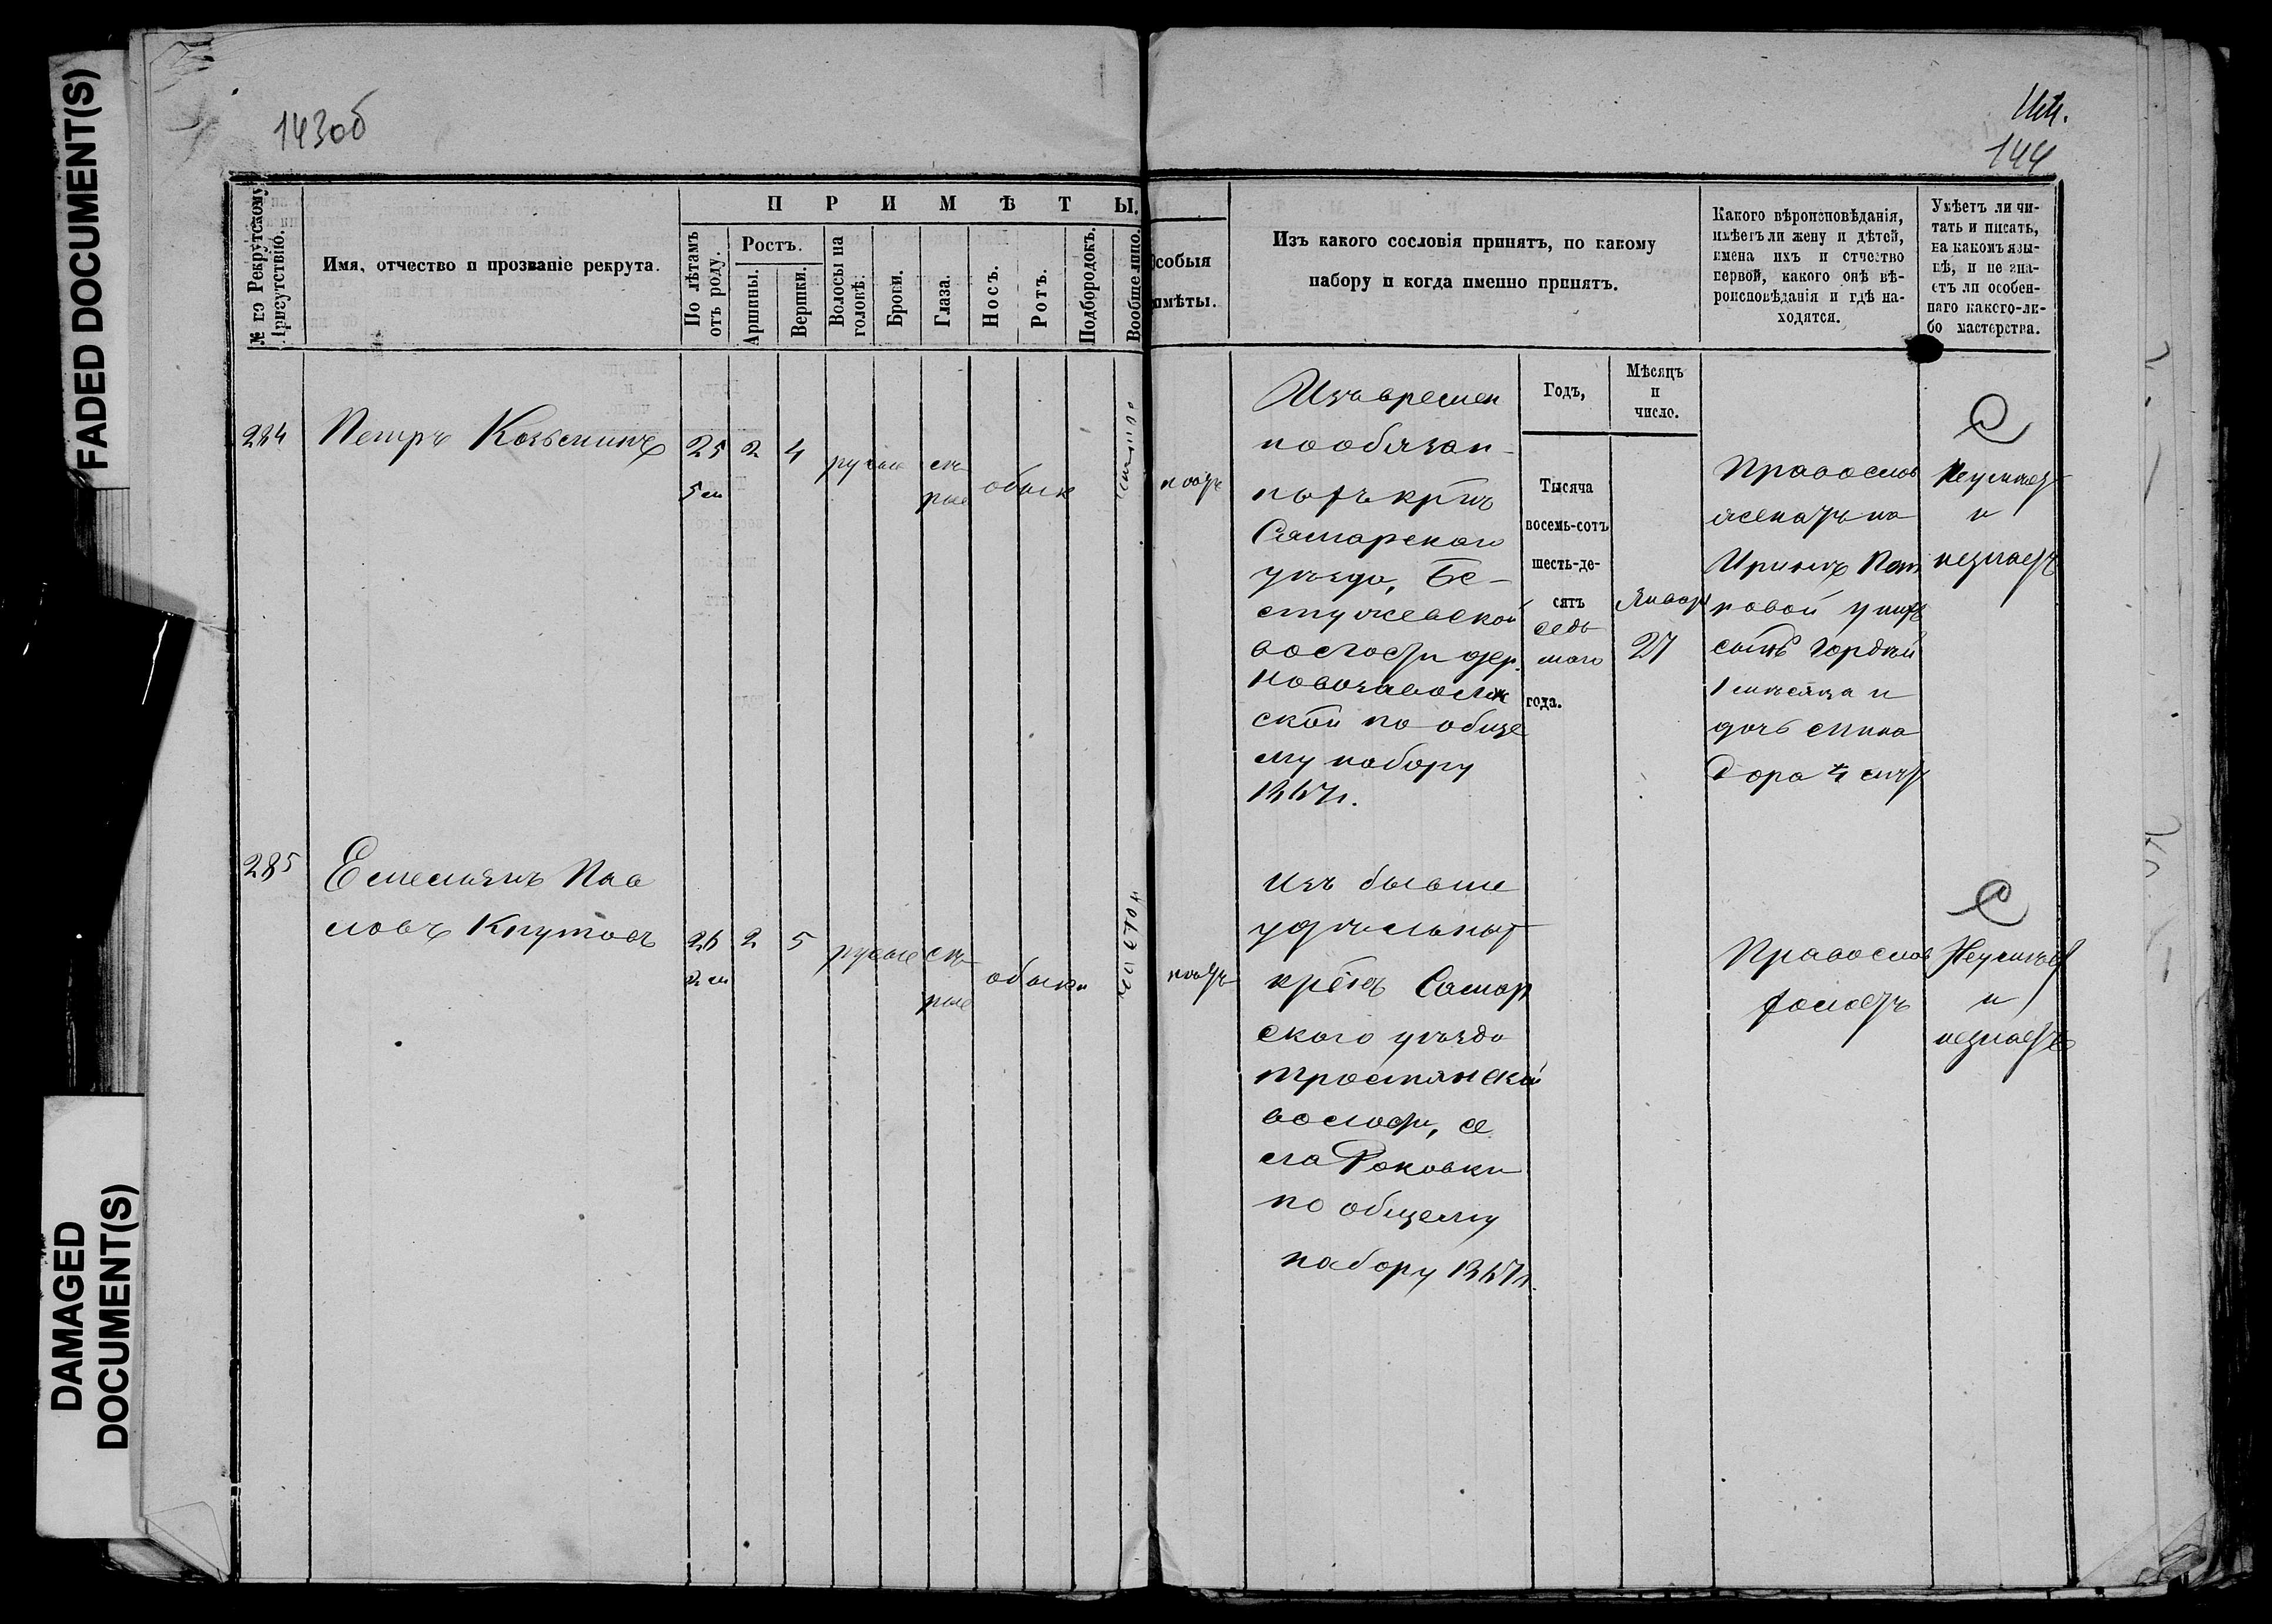 FADED DOCUMENT(S)
DAMAGED
DOCUMENT(S)
143об
144
№ по Рекрутскому
Присутствію.
Имя, отчество и прозваніе рекрута.
П Р И М Ѣ Т Ы.
По лѣтамъ
отъ роду.
Ростъ.
Аршины.
Вершки.
Волосы на
головѣ.
Брови.
Глаза.
Носъ.
Ротъ.
Подбородокъ.
Вообще лицо.
собыя
имѣты.
Изъ какого сословія принятъ, по какому
набору и когда именно принятъ.
Какого вѣроисповѣданія,
имѣетъ ли жену и дѣтей,
имена ихъ и отчество
первой, какого онѣ вѣ-
роисповѣданія и гдѣ на-
ходятся.
Умѣетъ ли чи-
тать и писать,
на какомъ язы-
кѣ, и не зна-
етъ ли особен-
наго какого-ли-
бо мастерства.
Годъ,
Мѣсяцъ
и
число.
284
Петръ Козьминъ
25
5 м
2
4
русые
сѣ-
рые
обыкн
чистое
нѣтъ
Изъ времен
нообязан-
ныхъ крнъ
Самарскаго
уѣзда, Бе-
стужевской
волости дер.
Новозаволж
ской по обще
му набору
1867 г.
Тысяча
восемь-сотъ
шесть-де-
сятъ
седь
маго
года.
Январь
27
Православ
женатъ на
Ириньѣ Пет
ровой у нихъ
сынъ Гордѣй
1 мѣсяца и
дочь
4 лѣтъ
Неумѣетъ
и
незнаетъ
285
Емельянъ Пав
ловъ Крутовъ
26
2 м
2
5
русые
сѣ-
рые
обыкн
чистое
нѣтъ
Изъ бывше
удѣльныхъ
крестьъ Самар
скаго уѣзда
Тростянской
волости, се
ла Раковки
по общему
набору 1867 г.
Православ
холостъ
Неумѣетъ
и
незнаетъ